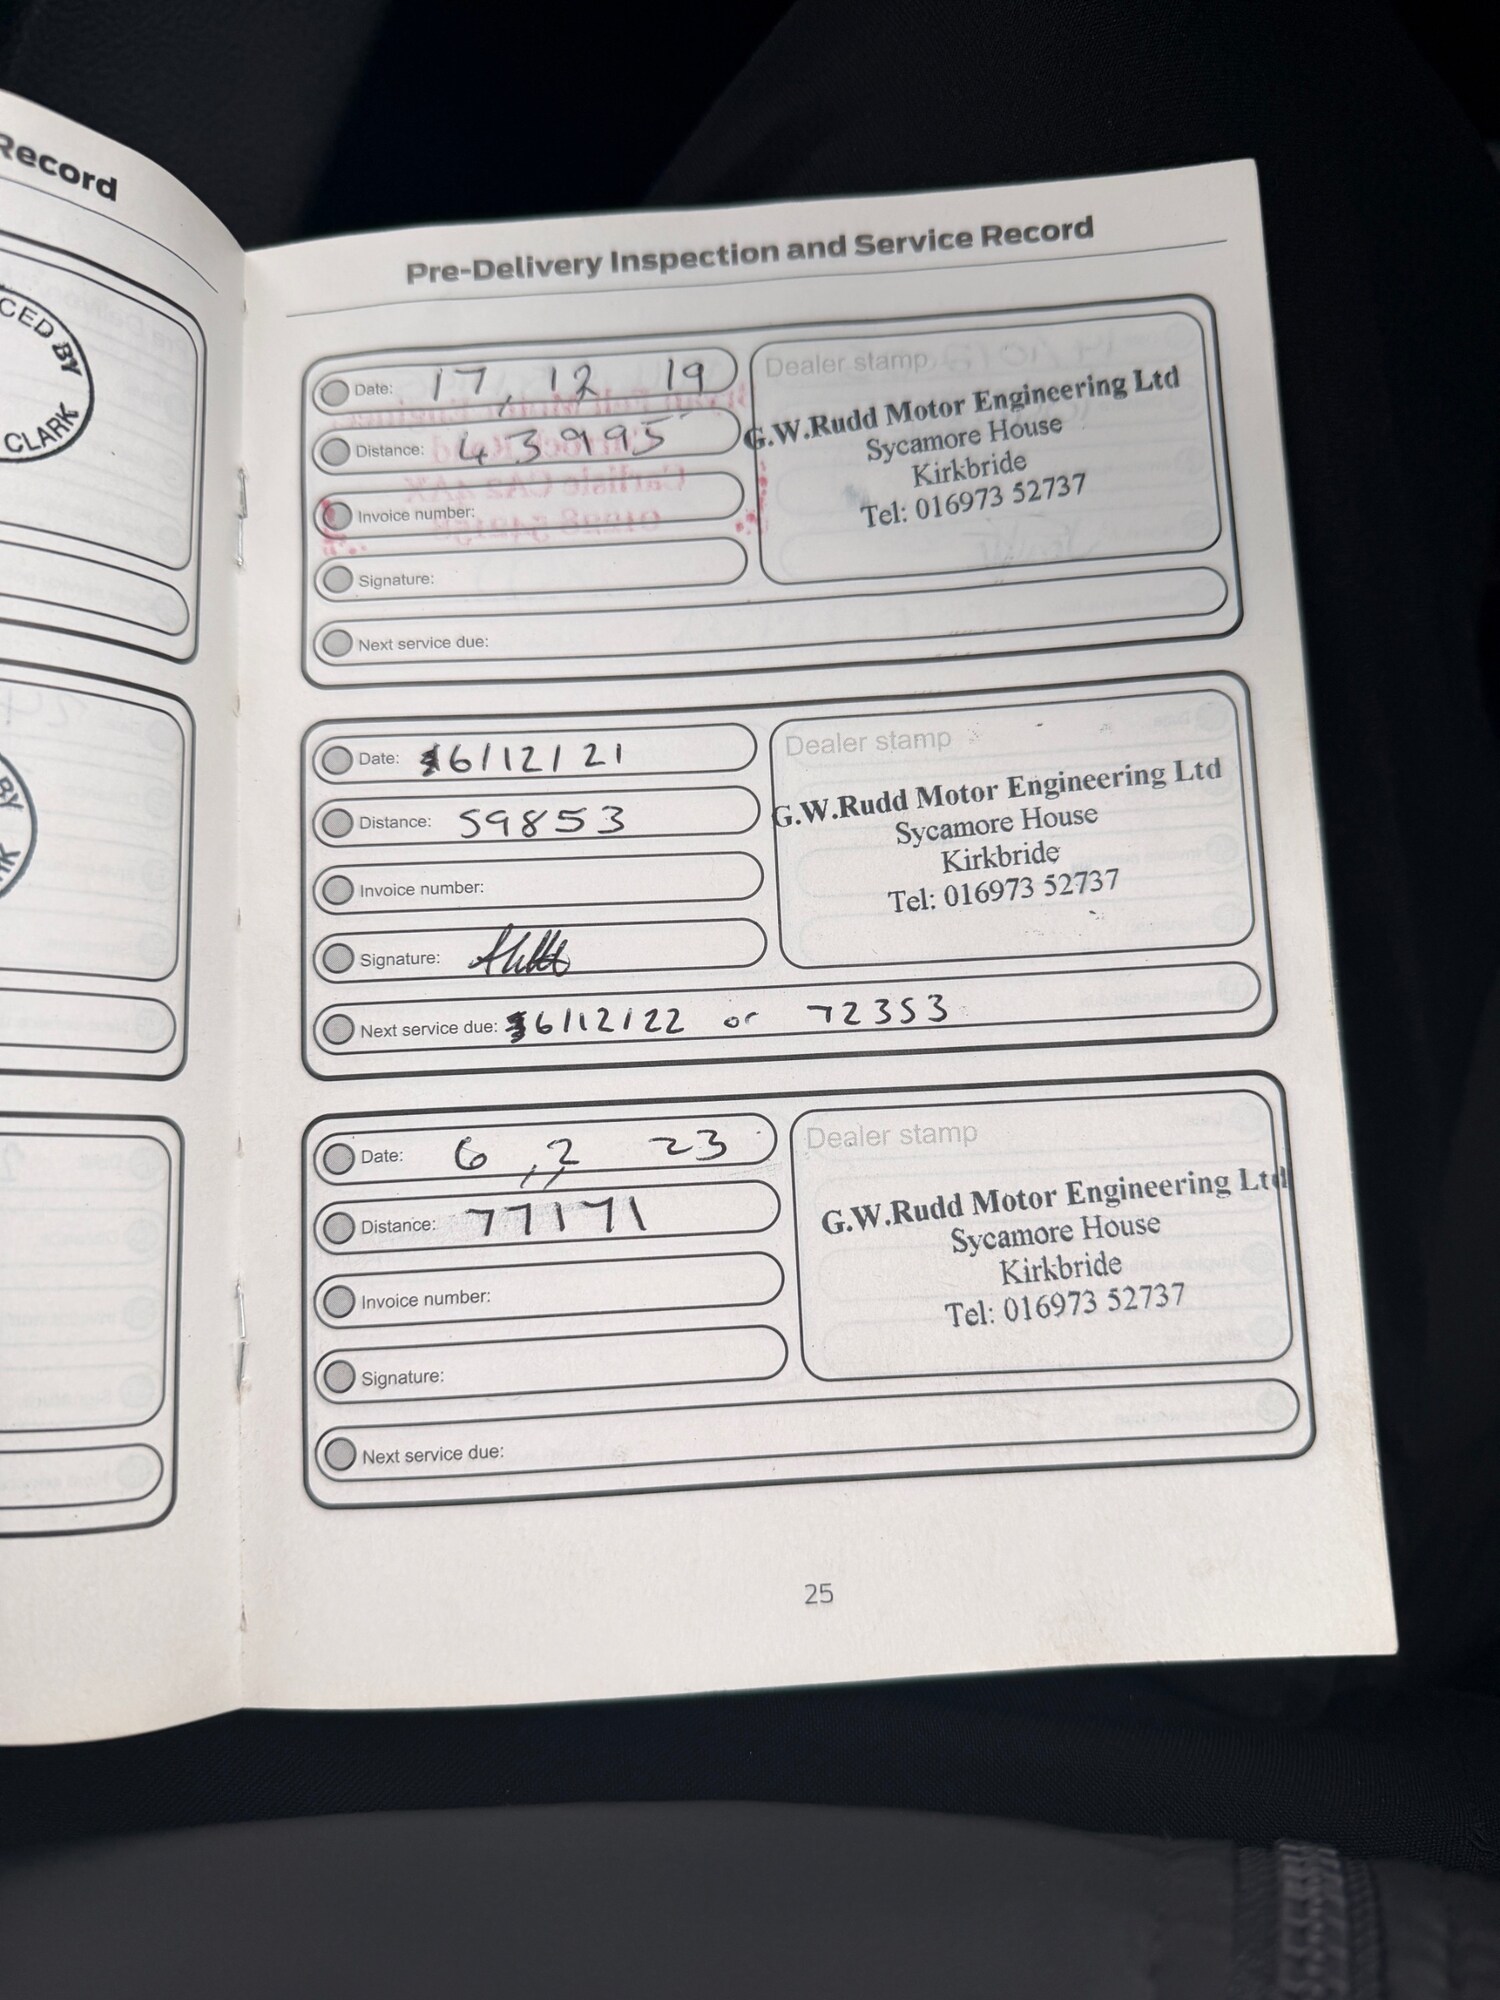 Record
CED BY
CLARK
BY
Pre-Delivery Inspection and Service Record
Date: 17 12 19
Distance: 43995
Invoice number:
Signature:
Next service due:
Dealer stamp
G.W.Rudd Motor Engineering Ltd
Sycamore House
Kirkbride
Tel: 016973 52737
Date: 6/12/21
Distance: 59853
Invoice number:
Signature:
Next service due: 6/12/22 or 72353
Dealer stamp
G.W.Rudd Motor Engineering Ltd
Sycamore House
Kirkbride
Tel: 016973 52737
Date: 6 2 23
Distance: 77171
Invoice number:
Signature:
Next service due:
Dealer stamp
G.W.Rudd Motor Engineering Ltd
Sycamore House
Kirkbride
Tel: 016973 52737
25